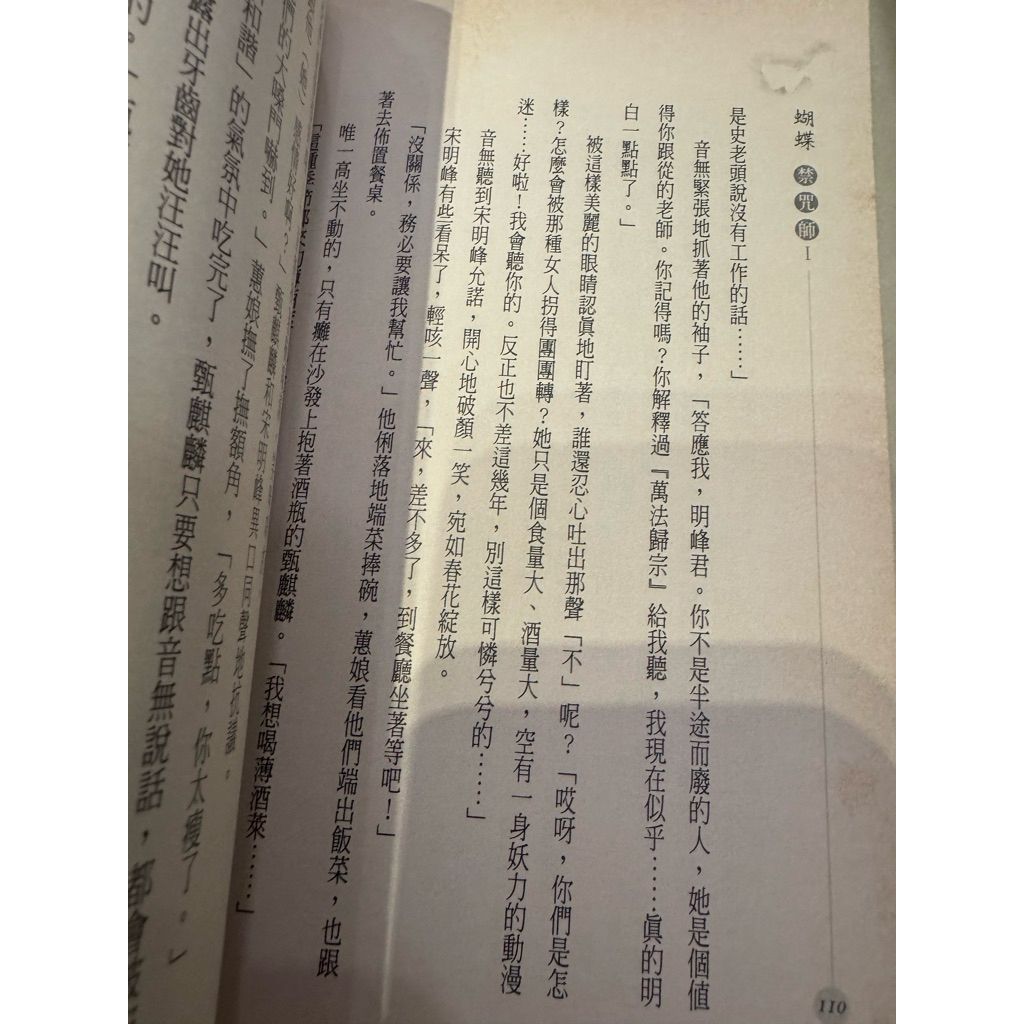 蝴蝶 禁咒師 I
是史老頭說沒有工作的話……」
音無緊張地抓著他的袖子，「答應我，明峰君。你不是半途而廢的人，她是個值
得你跟從的老師。你記得嗎？你解釋過『萬法歸宗』給我聽，我現在似乎……真的明
白一點點了。」
被這樣美麗的眼睛認真地盯著，誰還忍心吐出那聲「不」呢？「哎呀，你們是怎
樣？怎麼會被那種女人拐得團團轉？她只是個食量大、酒量大，空有一身妖力的動漫
迷……好啦！我會聽你的。反正也不差這幾年，別這樣可憐兮兮的……」
音無聽到宋明峰允諾，開心地破顏一笑，宛如春花綻放。
宋明峰有些看呆了，輕咳一聲，「來，差不多了，到餐廳坐著等吧！」
「沒關係，務必要讓我幫忙。」他俐落地端菜捧碗，蕙娘看他們端出飯菜，也跟
著去佈置餐桌。
唯一高坐不動的，只有癱在沙發上抱著酒瓶的甄麒麟。「我想喝薄酒萊……」
「這種季節
甄麒麟和宋明峰異口同聲地抗議。
們的大嗓門嚇到。」蕙娘撫了撫額角，「多吃點，你太瘦了。」
和諧」的氣氛中吃完了，甄麒麟只要想跟音無說話，都會
露出牙齒對她汪汪叫。
110